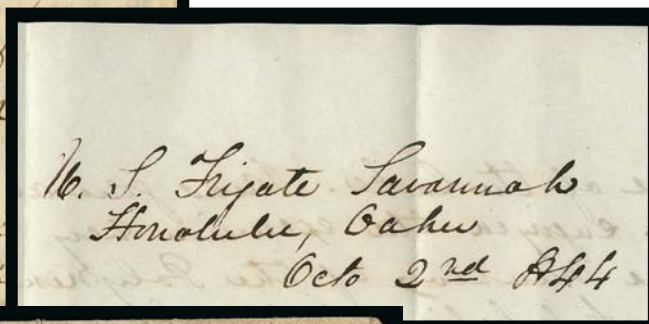 U. S. Frigate Savannah
Honolulu, Oahu
Octo 2nd 1844